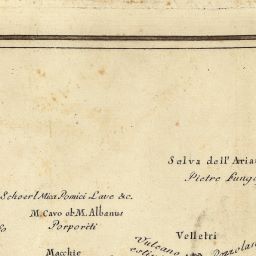 Selva dell' Aria
Pietre Fung
Schoerl Mica Pomici Lave &c.
M. Cavo ol. M. Albanus
Porporiti
Velletri
Macchie
Vulcano
Pozzolan